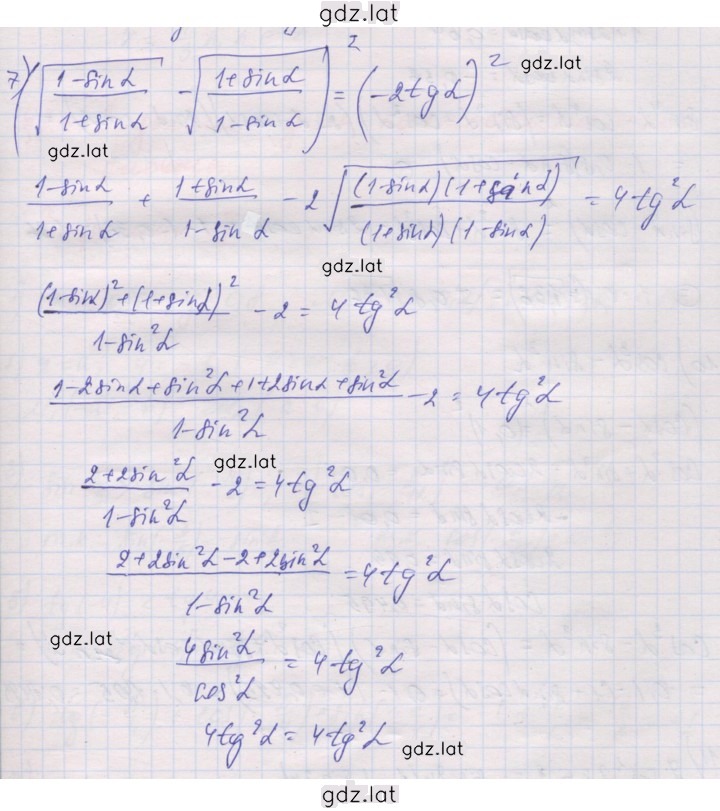 gdz.lat
7) (√((1-sinα)/(1+sinα)) - √((1+sinα)/(1-sinα)))² = (-2tgα)² gdz.lat
gdz.lat
(1-sinα)/(1+sinα) + (1+sinα)/(1-sinα) - 2√((1-sinα)(1+sinα)/(1+sinα)(1-sinα)) = 4tg²α
gdz.lat
((1-sinα)²+(1+sinα)²)/(1-sin²α) - 2 = 4tg²α
(1-2sinα+sin²α+1+2sinα+sin²α)/(1-sin²α) - 2 = 4tg²α
gdz.lat
(2+2sin²α)/(1-sin²α) - 2 = 4tg²α
(2+2sin²α-2+2sin²α)/(1-sin²α) = 4tg²α
gdz.lat
4sin²α/cos²α = 4tg²α
4tg²α = 4tg²α gdz.lat
gdz.lat